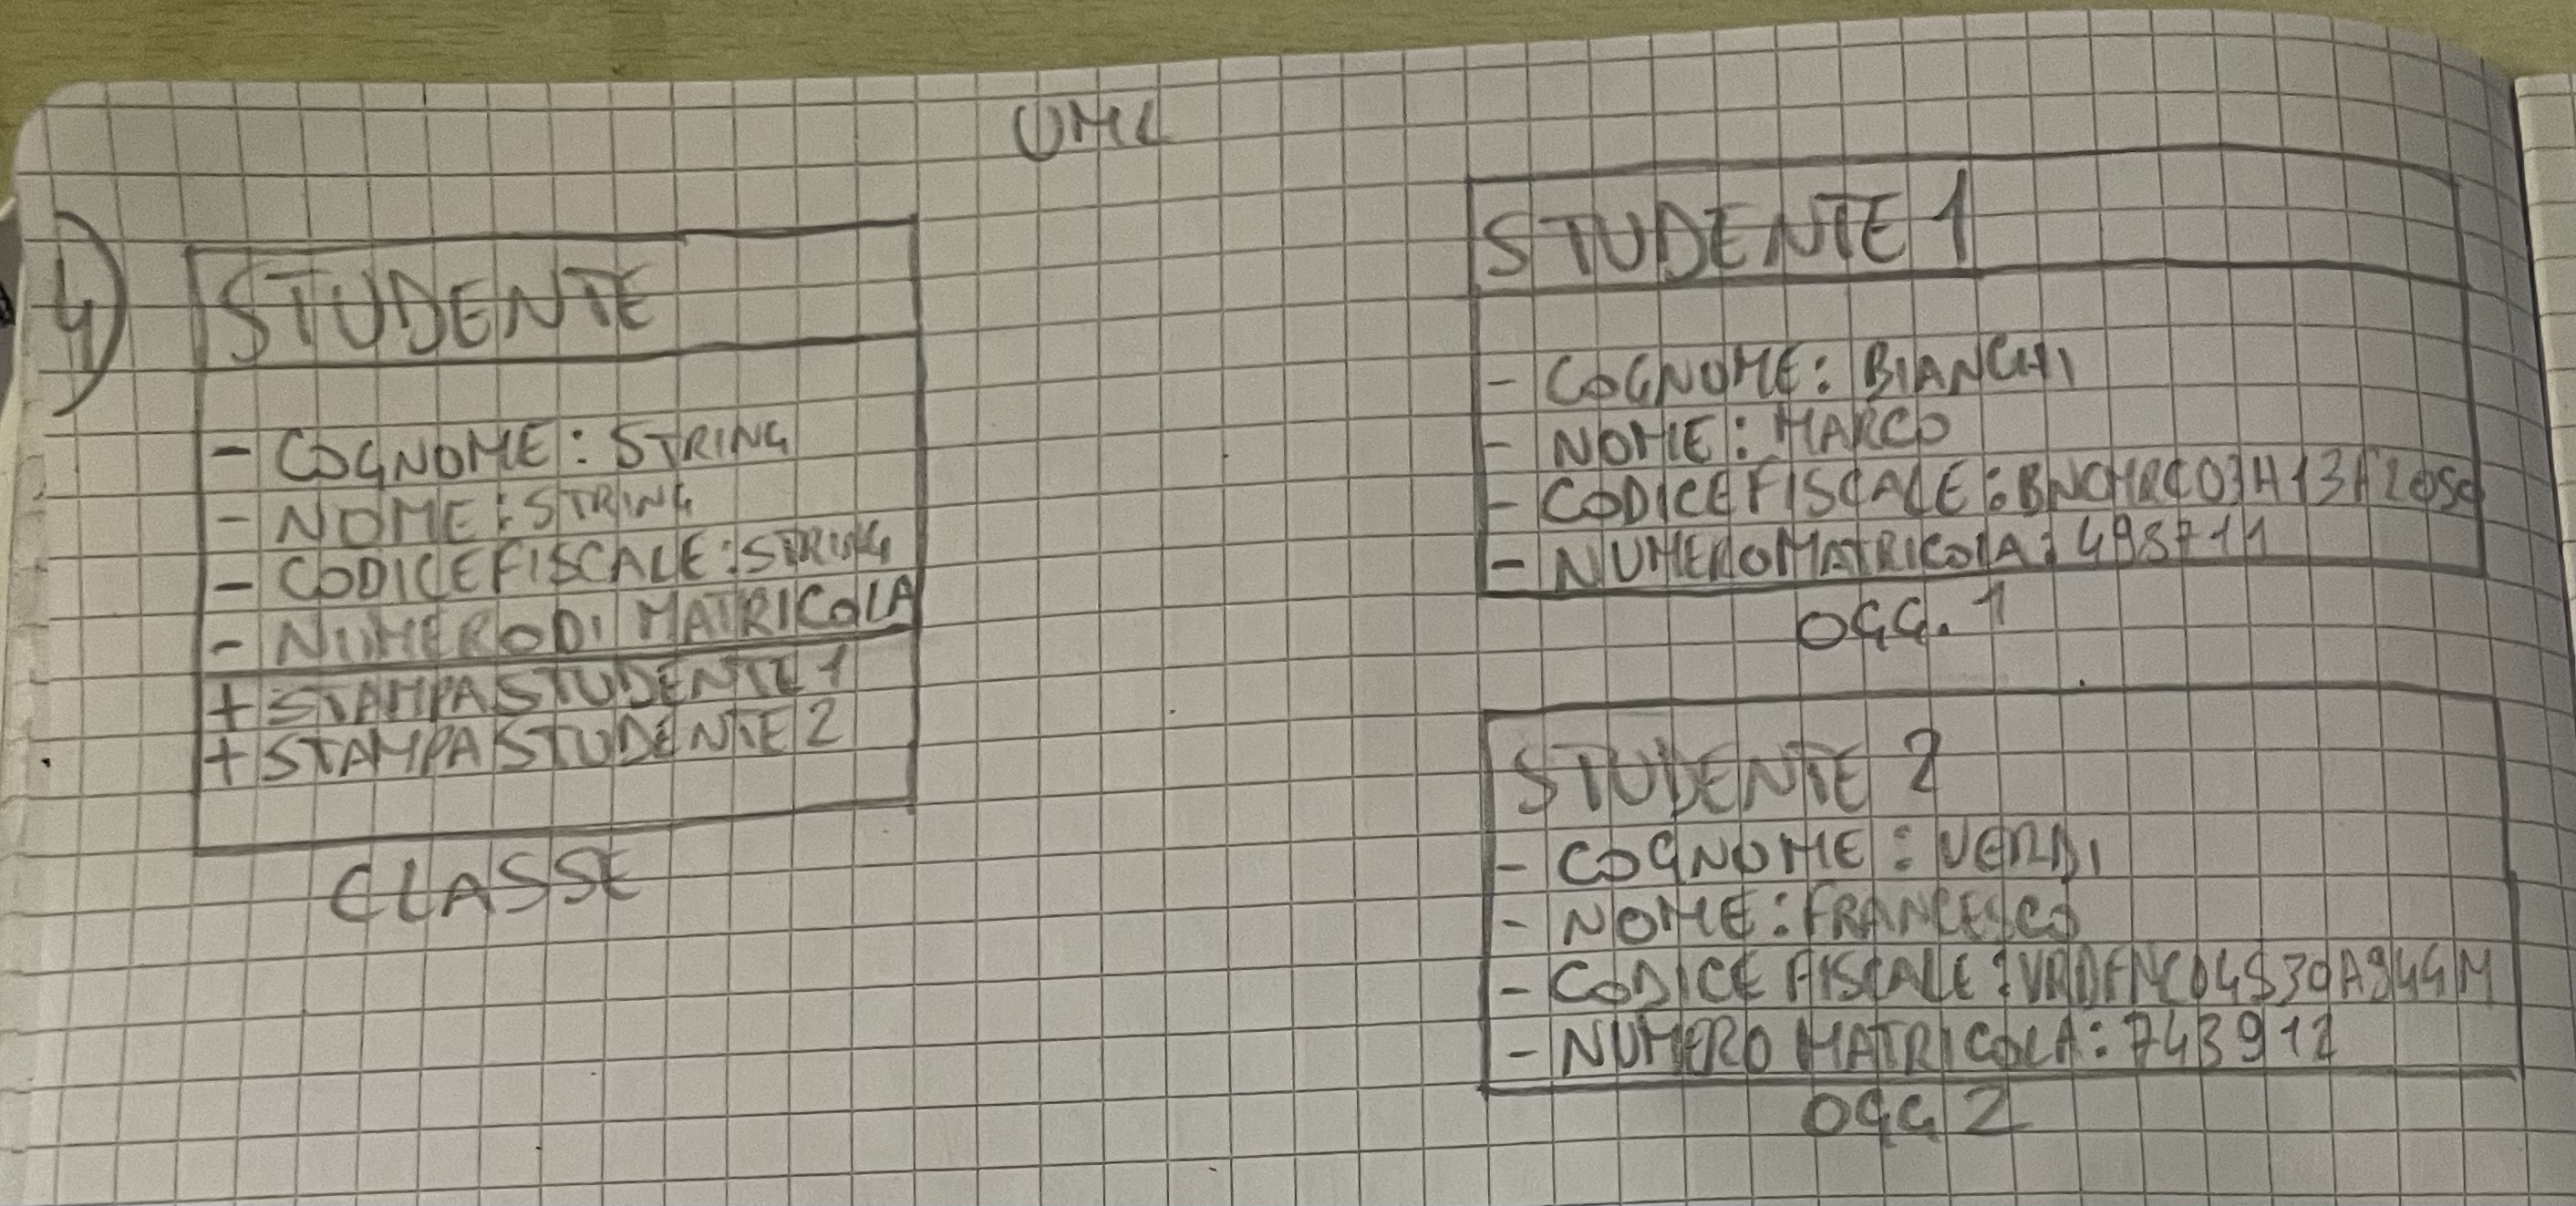 UML
4)
STUDENTE
- COGNOME: STRING
- NOME: STRING
- CODICEFISCALE: STRING
- NUMERODI MATRICOLA
+ STAMPASTUDENTE1
+ STAMPASTUDENTE2
CLASSE
STUDENTE 1
- COGNOME: BIANCHI
- NOME: MARCO
- CODICEFISCALE:
- NUMEROMATRICOLA:
OGG. 1
STUDENTE 2
- COGNOME: VERDI
- NOME: FRANCESCO
- CODICE FISCALE:
- NUMERO MATRICOLA: 743912
OGG 2